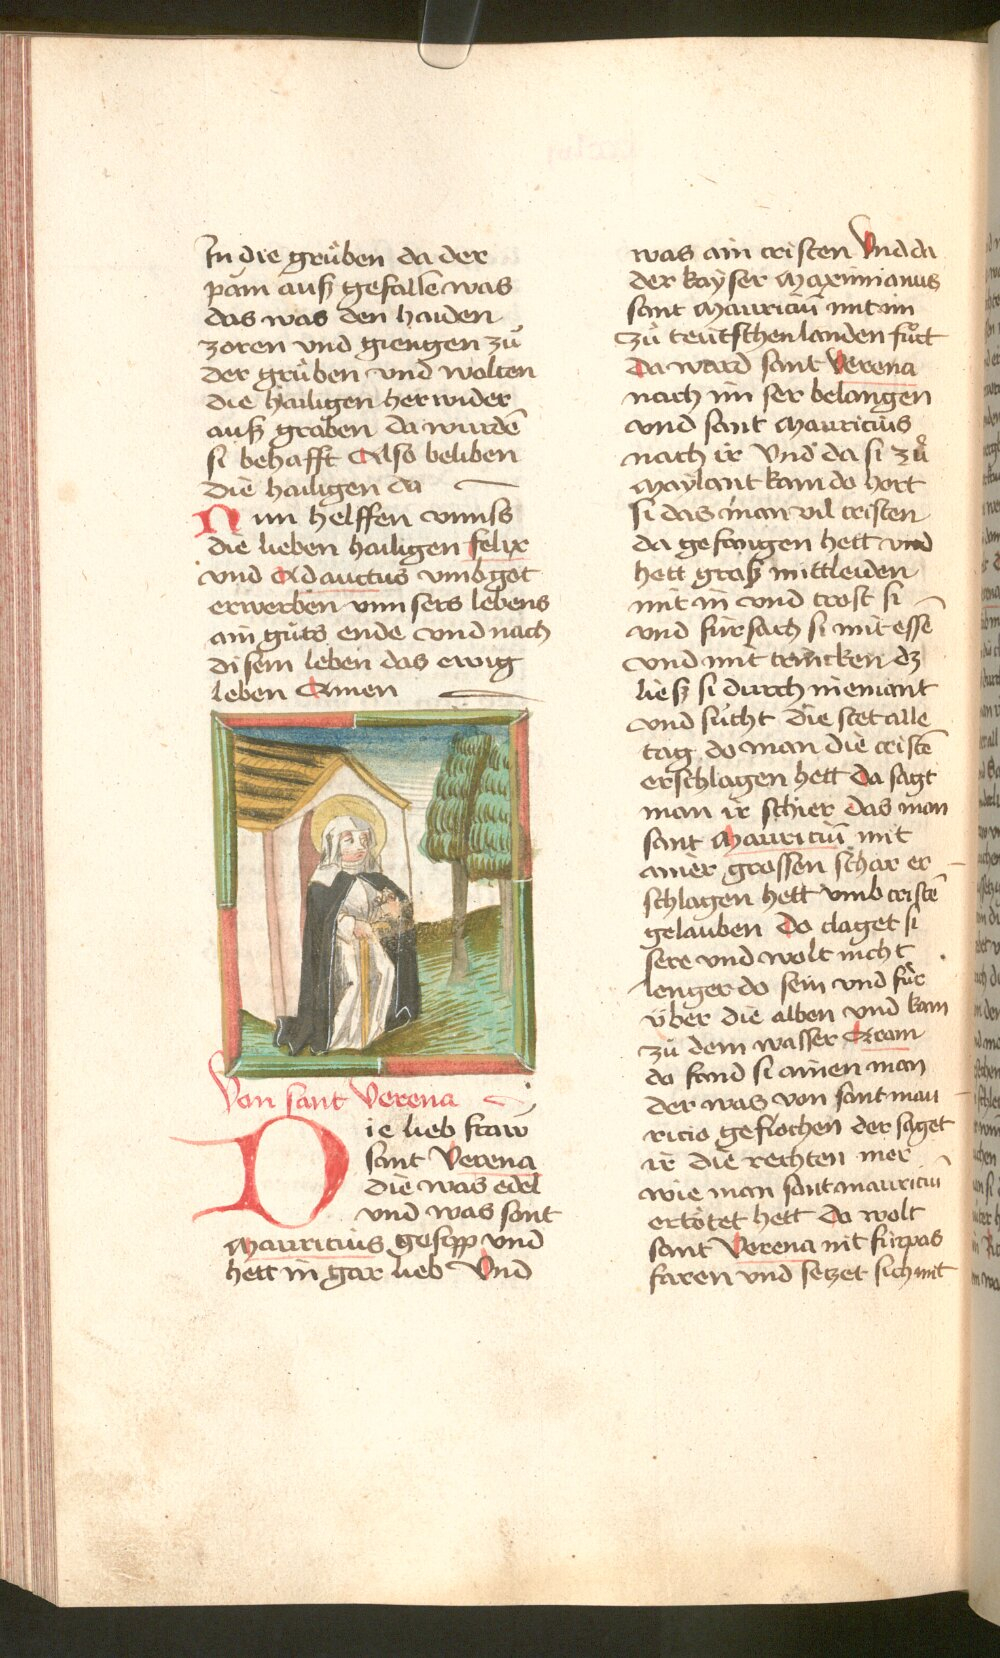 In die grůben da der
pam auß gefallē was
das was den haiden
zoren vnd giengen zů
der grůben vnd wolten
die hailigen her wider
auß graben da wurdē
si behafft Also beliben
die hailigen da
Nun helffen vnnss
die lieben hailigen felix
vnd Adauctus vmb got
erwerben vnnsers lebens
ain gůts ende vnd nach
disem leben das ewig
leben Amen
Von sant Verena
Die lieb fraw
sant Verena
die was edel
vnd was sant
Mauricius gesipp vnd
hett in gar lieb Vnd
was ain cristen Vnd da
der kayser Maximianus
sant Mauriciū mit im
zů teutschen landen fůrt
Da ward sant Verena
nach im ser belangen
vnd sant Mauricius
nach ir Vnd da si zů
Maylant kam do hort
si das man vil cristen
da gefangen hett vnd
hett groß mittleiden
mit in vnd trost si
vnd fürsach si mit essē
vnd mit trincken dz
ließ si durch niemant
vnd sucht die stet alle
tag do man die cristē
erschlagen hett Da sagt
man ir schier das man
sant Mauriciū mit
ainer grossen schar er
schlagen hett vmb cristē
gelauben Do claget si
sere vnd wolt nicht
lenger do sein vnd fůr
über die alben vnd kam
zů dem wasser Aram
do fand si ainen man
der was von sant mau
ricio geflochen der saget
ir die rechten mer
wie man sant mauriciū
ertötet hett Do wolt
sant Verena nit fürpas
faren vnd setzet sich mit